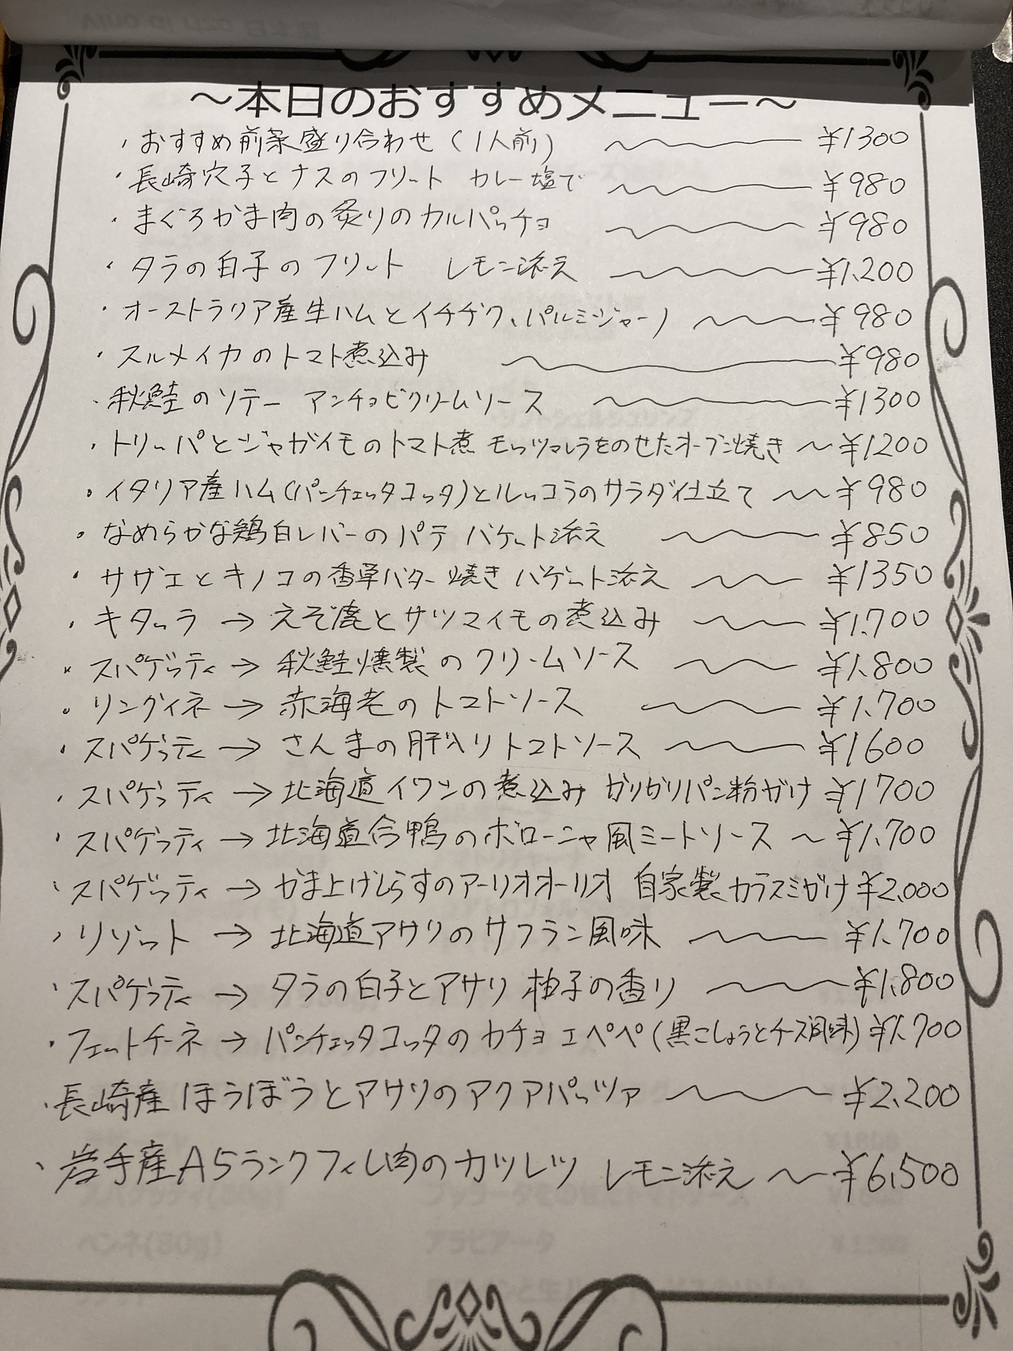 ～本日のおすすめメニュー～
・おすすめ前菜盛り合わせ（1人前） ¥1300
・長崎穴子とナスのフリート カレー塩で ¥980
・まぐろかま肉の炙りのカルパッチョ ¥980
・タラの白子のフリット レモン添え ¥1,200
・オーストラリア産生ハムとイチヂク、パルミジャーノ ¥980
・スルメイカのトマト煮込み ¥980
・秋鮭のソテー アンチョビクリームソース ¥1300
・トリッパとジャガイモのトマト煮 モッツァレラをのせたオーブン焼き ～¥1200
・イタリア産ハム(パンチェッタコッタ)とルッコラのサラダ仕立て ¥980
・なめらかな鶏白レバーのパテ バゲット添え ¥850
・サザエとキノコの香草バター焼き バゲット添え ¥1350
・キタッラ → えぞ鹿とサツマイモの煮込み ¥1,700
・スパゲッティ → 秋鮭燻製のクリームソース ¥1,800
・リングイネ → 赤海老のトマトソース ¥1,700
・スパゲッティ → さんまの肝入りトマトソース ¥1600
・スパゲッティ → 北海道イワシの煮込み ガリガリパン粉がけ ¥1700
・スパゲッティ → 北海道合鴨のボローニャ風ミートソース ～¥1,700
・スパゲッティ → かま上げしらすのアーリオオーリオ 自家製カラスミがけ ¥2,000
・リゾット → 北海道アサリのサフラン風味 ¥1,700
・スパゲッティ → タラの白子とアサリ 柚子の香り ¥1,800
・フェットチーネ → パンチェッタコッタのカチョエペペ(黒こしょうとチーズ風味) ¥1,700
・長崎産 ほうぼうとアサリのアクアパッツァ ¥2,200
・岩手産A5ランクフィレ肉のカツレツ レモン添え ～¥6,500